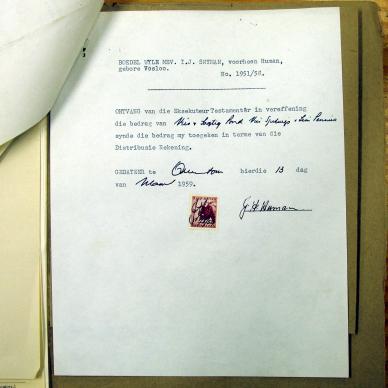 BOEDEL WYLE MEV. I.J. SNYMAN, voorheen Human,
gebore Vosloo.
No. 1951/58.
ONTVANG van die Eksekuteur Testamentêr in vereffening
die bedrag van Pond
synde die bedrag my toegeken in terme van die
Distribusie Rekening.
GEDATEER te hierdie 13 dag
van Maart 1959.
J H Human